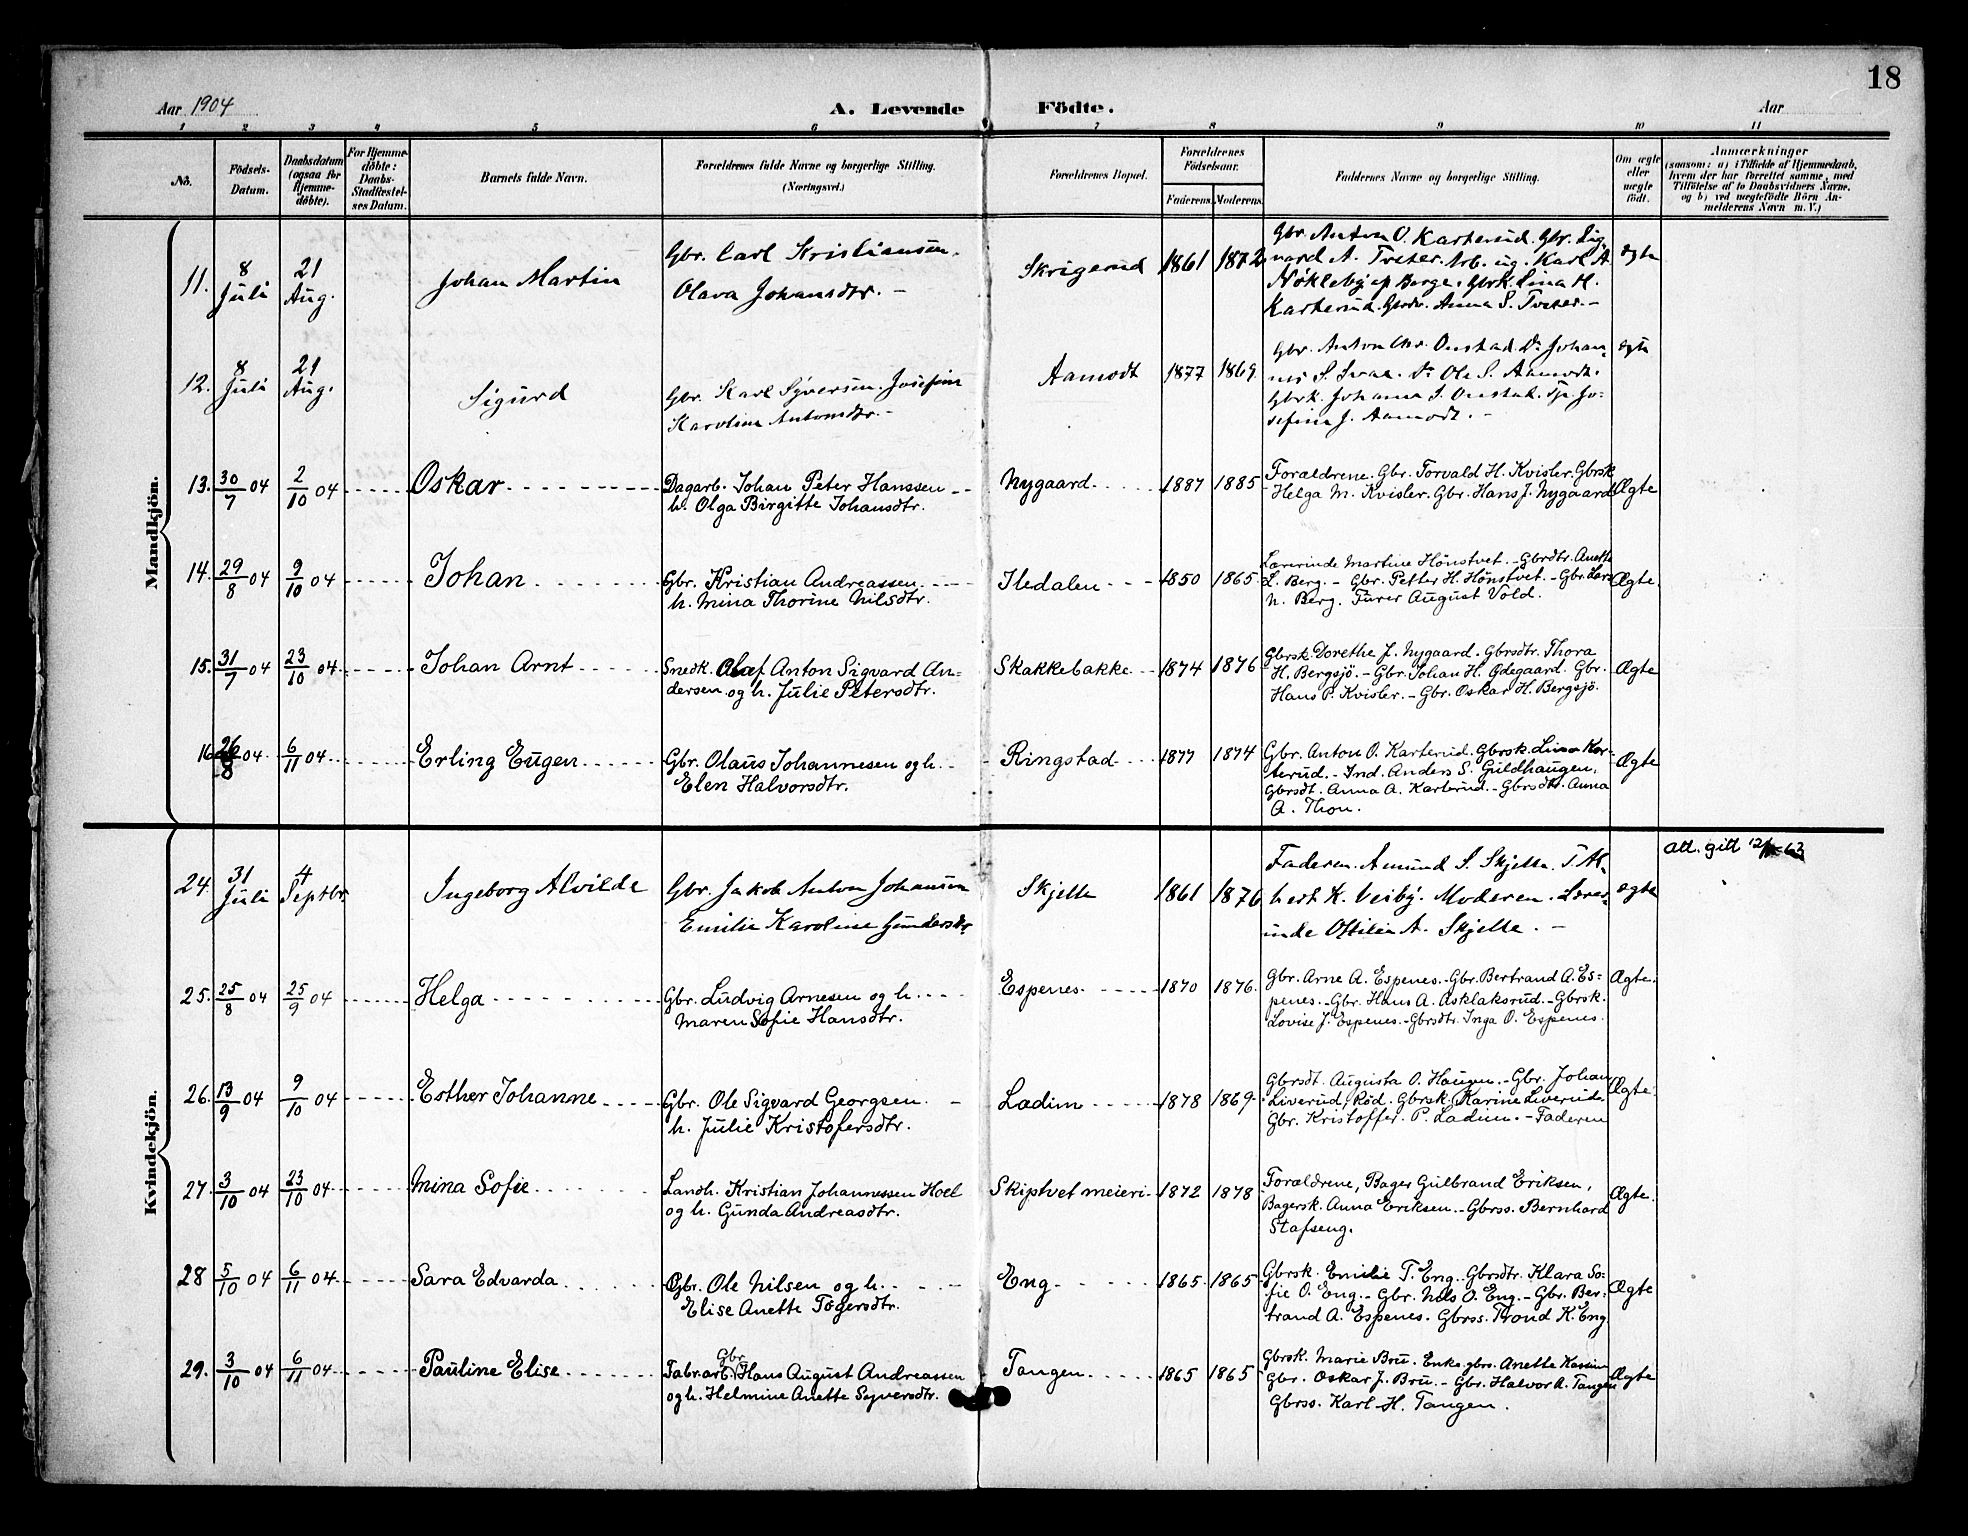 18
Aar 1904
A. Levende Födte.
Aar
1 2 3 4 5 6 7 8 9 10 11
No.
Födsels-
Datum.
Daabsdatum
(ogsaa for
Hjemme-
döbte).
For Hjemme-
döbte:
Daabs-
Stadfæstel-
ses Datum.
Barnets fulde Navn.
Forældrenes fulde Navne og borgerlige Stilling.
(Næringsvei.)
Forældrenes Bopæl.
Forældrenes
Födselsaar.
Faderens. Moderens.
Faddernes Navne og borgerlige Stilling.
Om ægte
eller
uægte
födt.
Anmærkninger
(saasom: a) i Tilfælde af Hjemmedaab,
hvem der har forrettet samme, med
Tilföielse af to Daabsvidners Navne.
og b) ved uægtefödte Börn An-
melderens Navn m. V.)
Mandkjön.
11. 8 Juli 21 Aug. Johan Martin
Gbr. Carl Kristiansen.
Olava Johansdtr. -
Skrigerud 1861 1872
Gbr. Anton O. Karterud. Gbr. Sig-
vard A. Tveter. Arb. ug. Karl A
Nøkleby af Berge. Gbrk. Lina H.
Karterud. Gbrdr. Anna S. Tveter. -
ægte
12. 8 Juli 21 Aug. Sigurd
Gbr. Karl Syversen. Josefine
Karoline Antonsdtr. -
Aamodt 1877 1869
Gbr. Anton Chr. Onstad. Do Johan-
nes S. Do Ole S. Aamodt.
Gbrk. Johanne S. Onstad. Tj. Jo-
sefine J. Aamodt. -
ægte
13. 30/7 04 2/10 04 Oskar
Dagarb. Johan Peter Hanssen
h. Olga Birgitte Johansdtr.
Nygaard 1887 1885
Forældrene. Gbr. Torvald H. Kvisler. Gbrsk
Helga M. Kvisler. Gbr. Hans J. Nygaard
Ægte
14. 29/8 04 9/10 04 Johan
Gbr. Kristian Andreassen
h. Mina Thorine Nilsdtr.
Iledalen 1850 1865
Lærerinde Martine Hönstvet. - Gbrdtr. Anette
L. Berg. - Gbr. Petter H. Hönstvet. - Gbr. Lars
N. Berg. Furer August Vold.
Ægte.
15. 31/7 04 23/10 04 Johan Arnt
Snedk. Olaf Anton Sigvard An=
dersen og h. Julie Petersdtr.
Skakkebakke 1874 1876
Gbrsk Dorethe J. Nygaard. Gbrsdtr. Thora
H. Bergsjö. - Gbr. Johan H. Ödegaard. Gbr.
Hans P. Kvisler. - Gbr. Oskar H. Bergsjö.
Ægte
16 26/8 04 6/11 04 Erling Eugen
Gbr. Olaus Johannesen og h.
Elen Halvorsdtr.
Ringstad 1877 1874
Gbr. Anton O. Karterud. Gbrsk. Lina Kar-
terud. - Ind. Anders S. Guldhaugen.
Gbrsdt. Anna A. Karterud. - Gbrsdtr. Anna
A. Thon.
Ægte
Kvindekjön.
24. 31 Juli 4 Septbr. Ingeborg Alvilde
Gbr. Jakob Anton Johansen
Emilie Karoline Gundersdtr
Skjelle 1861 1876
Faderen. Amund S. Skjelle. T. Al-
bert K. Veiby. Moderen. Lærer-
inde Ottilie A. Skjelle. -
ægte
att. gitt
25. 25/8 04 25/9 04 Helga
Gbr. Ludvig Arnesen og h.
Maren Sofie Hansdtr.
Espenes. 1870 1876.
Gbr. Arne A. Espenes. - Gbr. Bertrand A. Es=
penes. - Gbr. Hans A. Asklaksrud. - Gbrsk.
Lovise J. Espenes. - Gbrsdtr. Inga O. Espenes.
Ægte.
26. 13/9 04 9/10 04 Esther Johanne
Gbr. Ole Sigvard Georgsen.
h. Julie Kristofersdtr.
Ladim 1878 1869
Gbrsdt. Augusta O. Haugen. - Gbr. Johan
Liverud, Röd. Gbrsk. Karine Liverud.
Gbr. Kristoffer. P. Ladim. - Faderen
Ægte.
27. 3/10 04 23/10 04 Mina Sofie
Landh. Kristian Johannessen Hoel
og h. Gunda Andreasdtr.
Skiptvet meieri 1872 1878
Forældrene, Bager Gulbrand Eriksen,
Bagersk. Anna Eriksen. - Gbrss. Bernhard
Stafseng.
Ægte.
28 5/10 04 6/11 04 Sara Edvarda
Gbr. Ole Nilsen og h.
Elise Anette Tögersdtr.
Eng 1865 1865
Gbrsk. Emilie T. Eng. Gbrsdtr. Klara So=
fie O. Eng. - Gbr. Nils O. Eng. - Gbr. Ber-
trand A. Espenes. Gbrss. Trond K. Eng
Ægte
29. 3/10 04 6/11 04 Pauline Elise
Gbr.
Fabr.arb. Hans August Andreassen
og h. Helmine Anette Syversdtr.
Tangen 1865 1865
Gbrsk. Marie Bru. Enke. gbrs. Anette
Gbr. Oskar J. Bru. - Gbr. Halvor A. Tangen
Gbrss. Karl H. Tangen.
Ægte